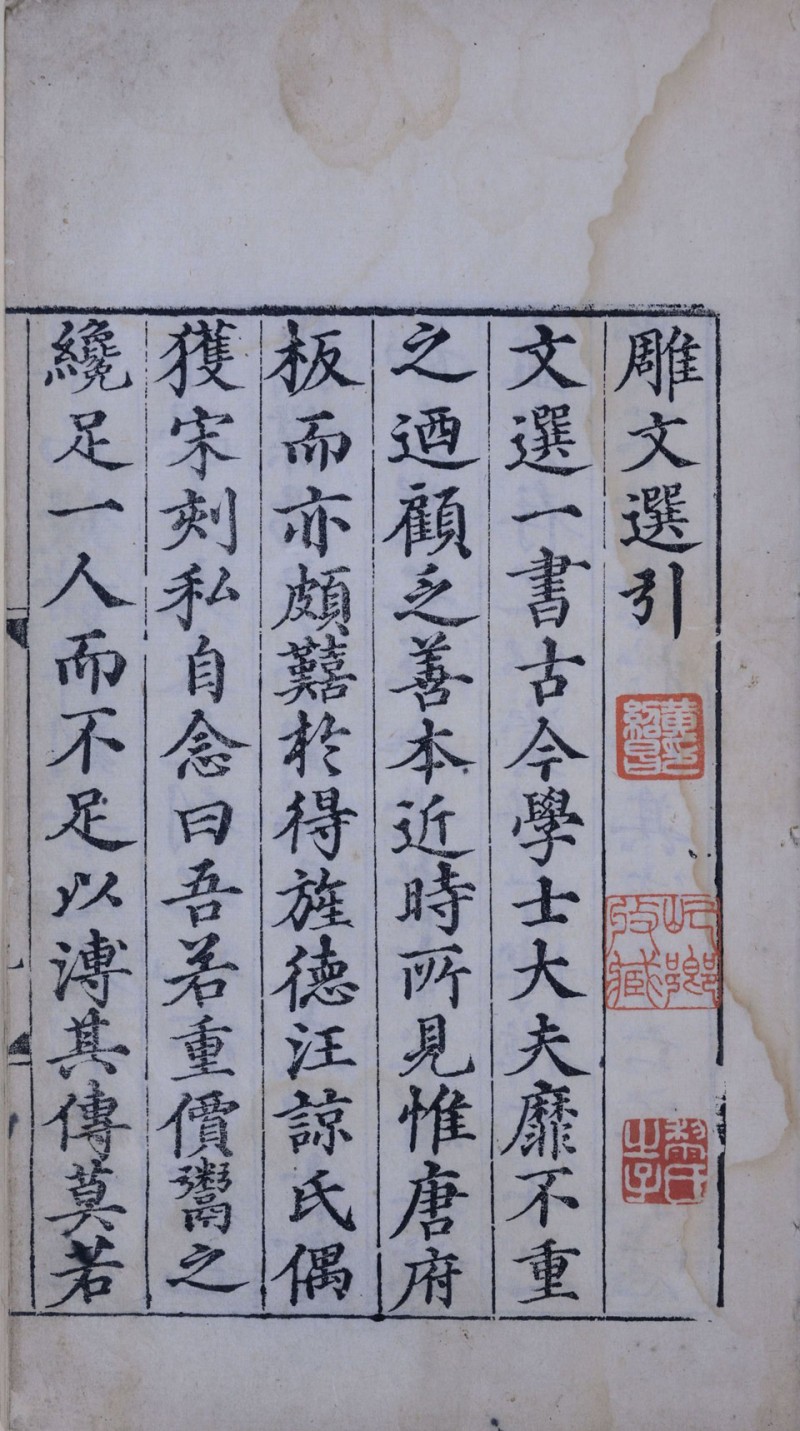 雕文選引
文選一書古今學士大夫靡不重
之迺顧乏善本近時所見惟唐府
板而亦頗囏於得旌德汪諒氏偶
獲宋刻私自念曰吾若重價鬻之
纔足一人而不足以溥其傳莫若